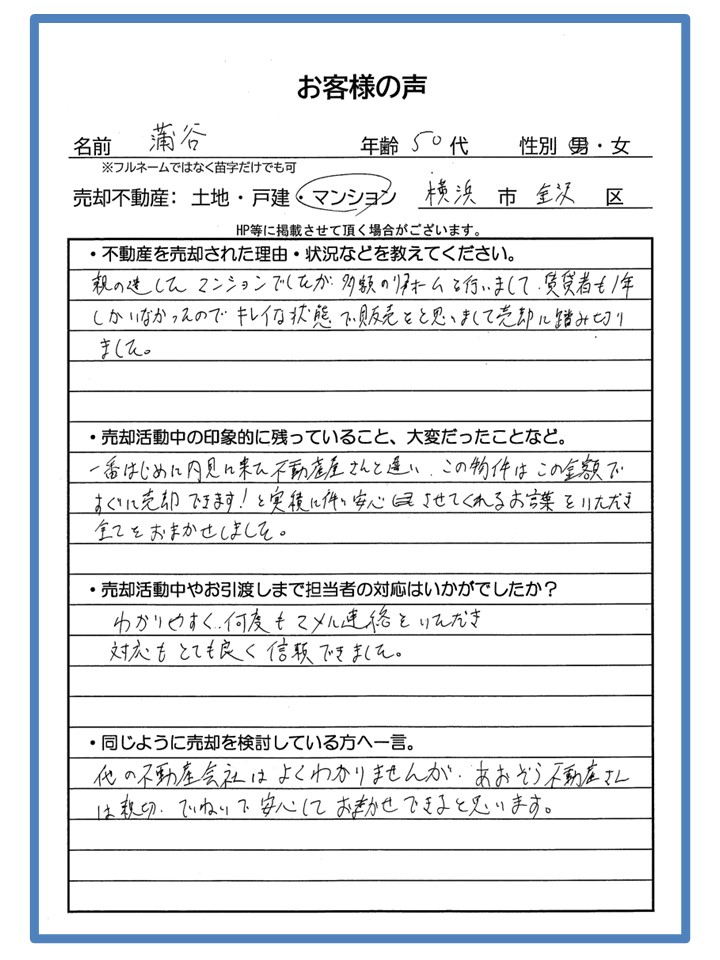 お客様の声
名前 蒲谷 年齢 50代 性別 男・女
※フルネームではなく苗字だけでも可
売却不動産： 土地・戸建・マンション 横浜 市 金沢 区
HP等に掲載させて頂く場合がございます。
・不動産を売却された理由・状況などを教えてください。
親の遺したマンションでしたが多額のリフォームを行いまして、賃貸者も1年
しかいなかったのでキレイな状態で販売をと思いまして売却に踏み切り
ました。
・売却活動中の印象的に残っていること、大変だったことなど。
一番はじめに内見に来た不動産屋さんと違い、この物件はこの金額で
すぐに売却できます！と実績に伴い安心させてくれるお言葉をいただき
全てをおまかせしました。
・売却活動中やお引渡しまで担当者の対応はいかがでしたか？
わかりやすく、何度もマメに連絡をいただき
対応もとても良く信頼できました。
・同じように売却を検討している方へ一言。
他の不動産会社はよくわかりませんが、あおぞら不動産さん
は親切、ていねいで安心しておまかせできると思います。